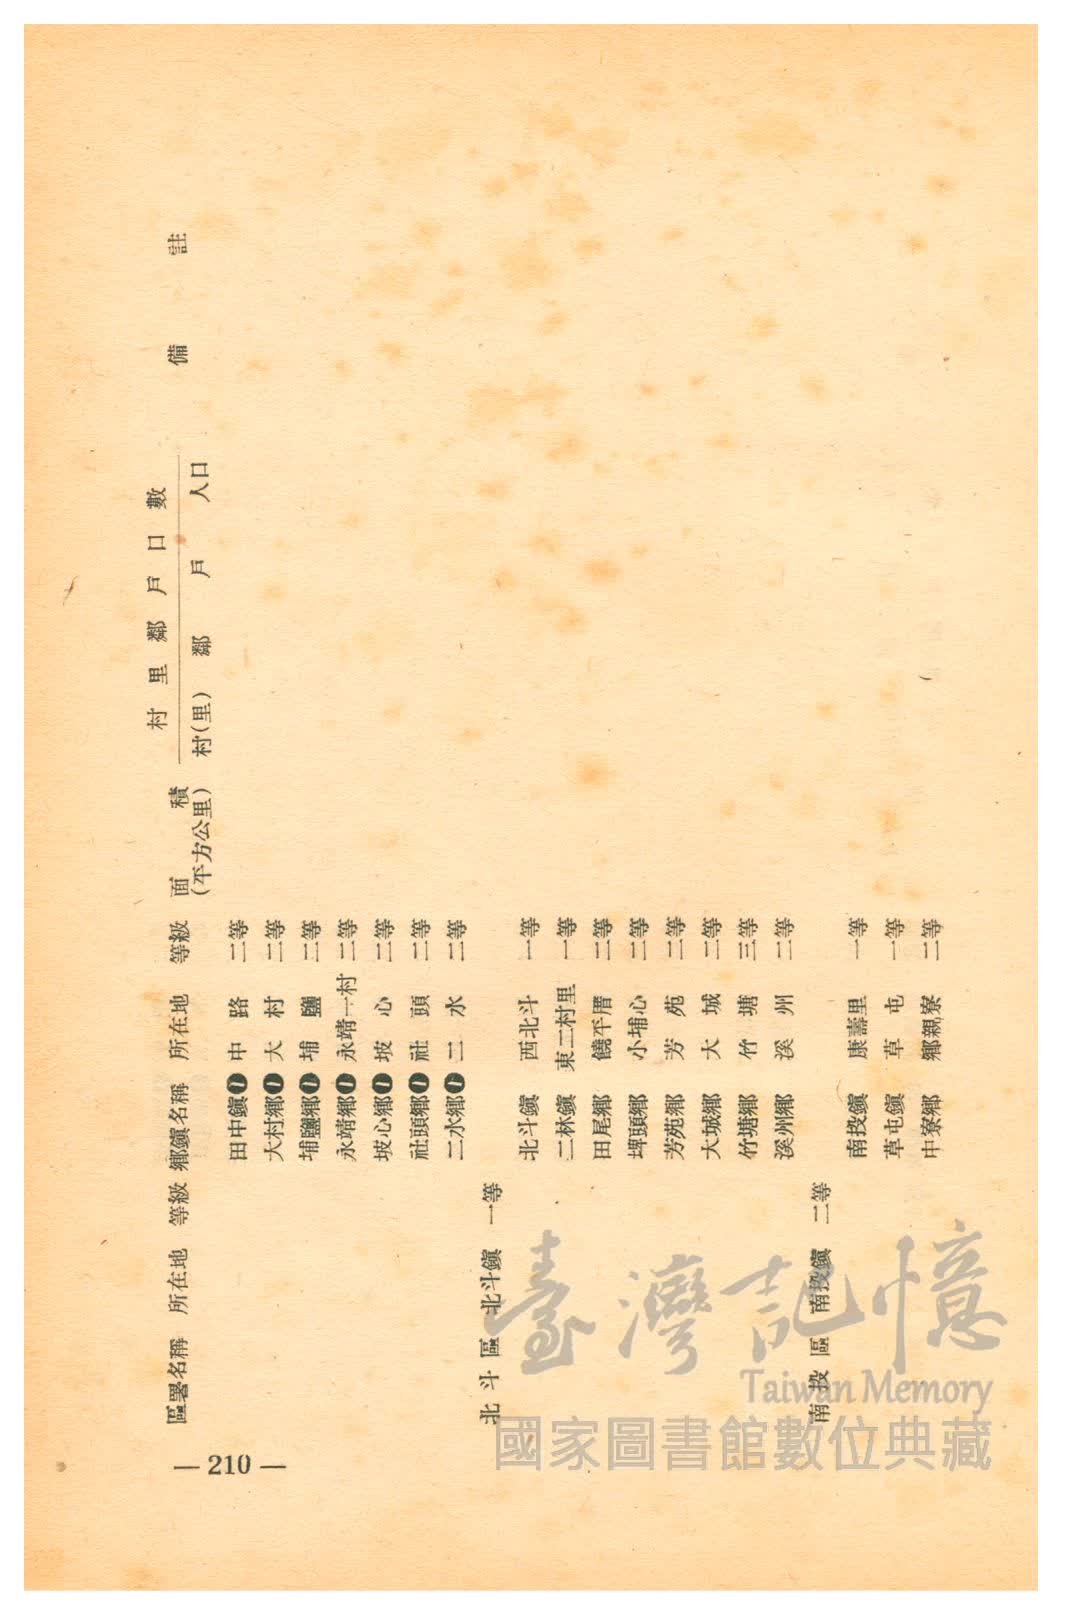 區署名稱 所在地 等級 鄉鎭名稱 所在地 等級 面積(平方公里) 村里鄰戶口數 備註
村(里) 鄰 戶 人口
田中鎭❶ 中路 二等
大村鄉❶ 大村 二等
埔鹽鄉❶ 埔鹽 二等
永靖鄉❶ 永靖一村 二等
坡心鄉❶ 坡心 二等
社頭鄉❶ 社頭 二等
二水鄉❶ 二水 二等
北斗區 北斗鎭 一等
北斗鎭 西北斗 一等
二林鎭 東二村里 一等
田尾鄉 饒平厝 二等
埤頭鄉 小埔心 二等
芳苑鄉 芳苑 二等
大城鄉 大城 二等
竹塘鄉 竹塘 三等
溪州鄉 溪州 二等
南投區 南投鎭 二等
南投鎭 康壽里 一等
草屯鎭 草屯 一等
中寮鄉 鄉親寮 二等
— 210 —
臺灣記憶
Taiwan Memory
國家圖書館數位典藏